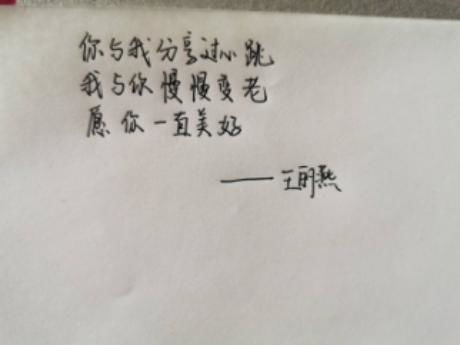 你与我分享过心跳
我与你慢慢变老
愿你一直美好
——王丽燕